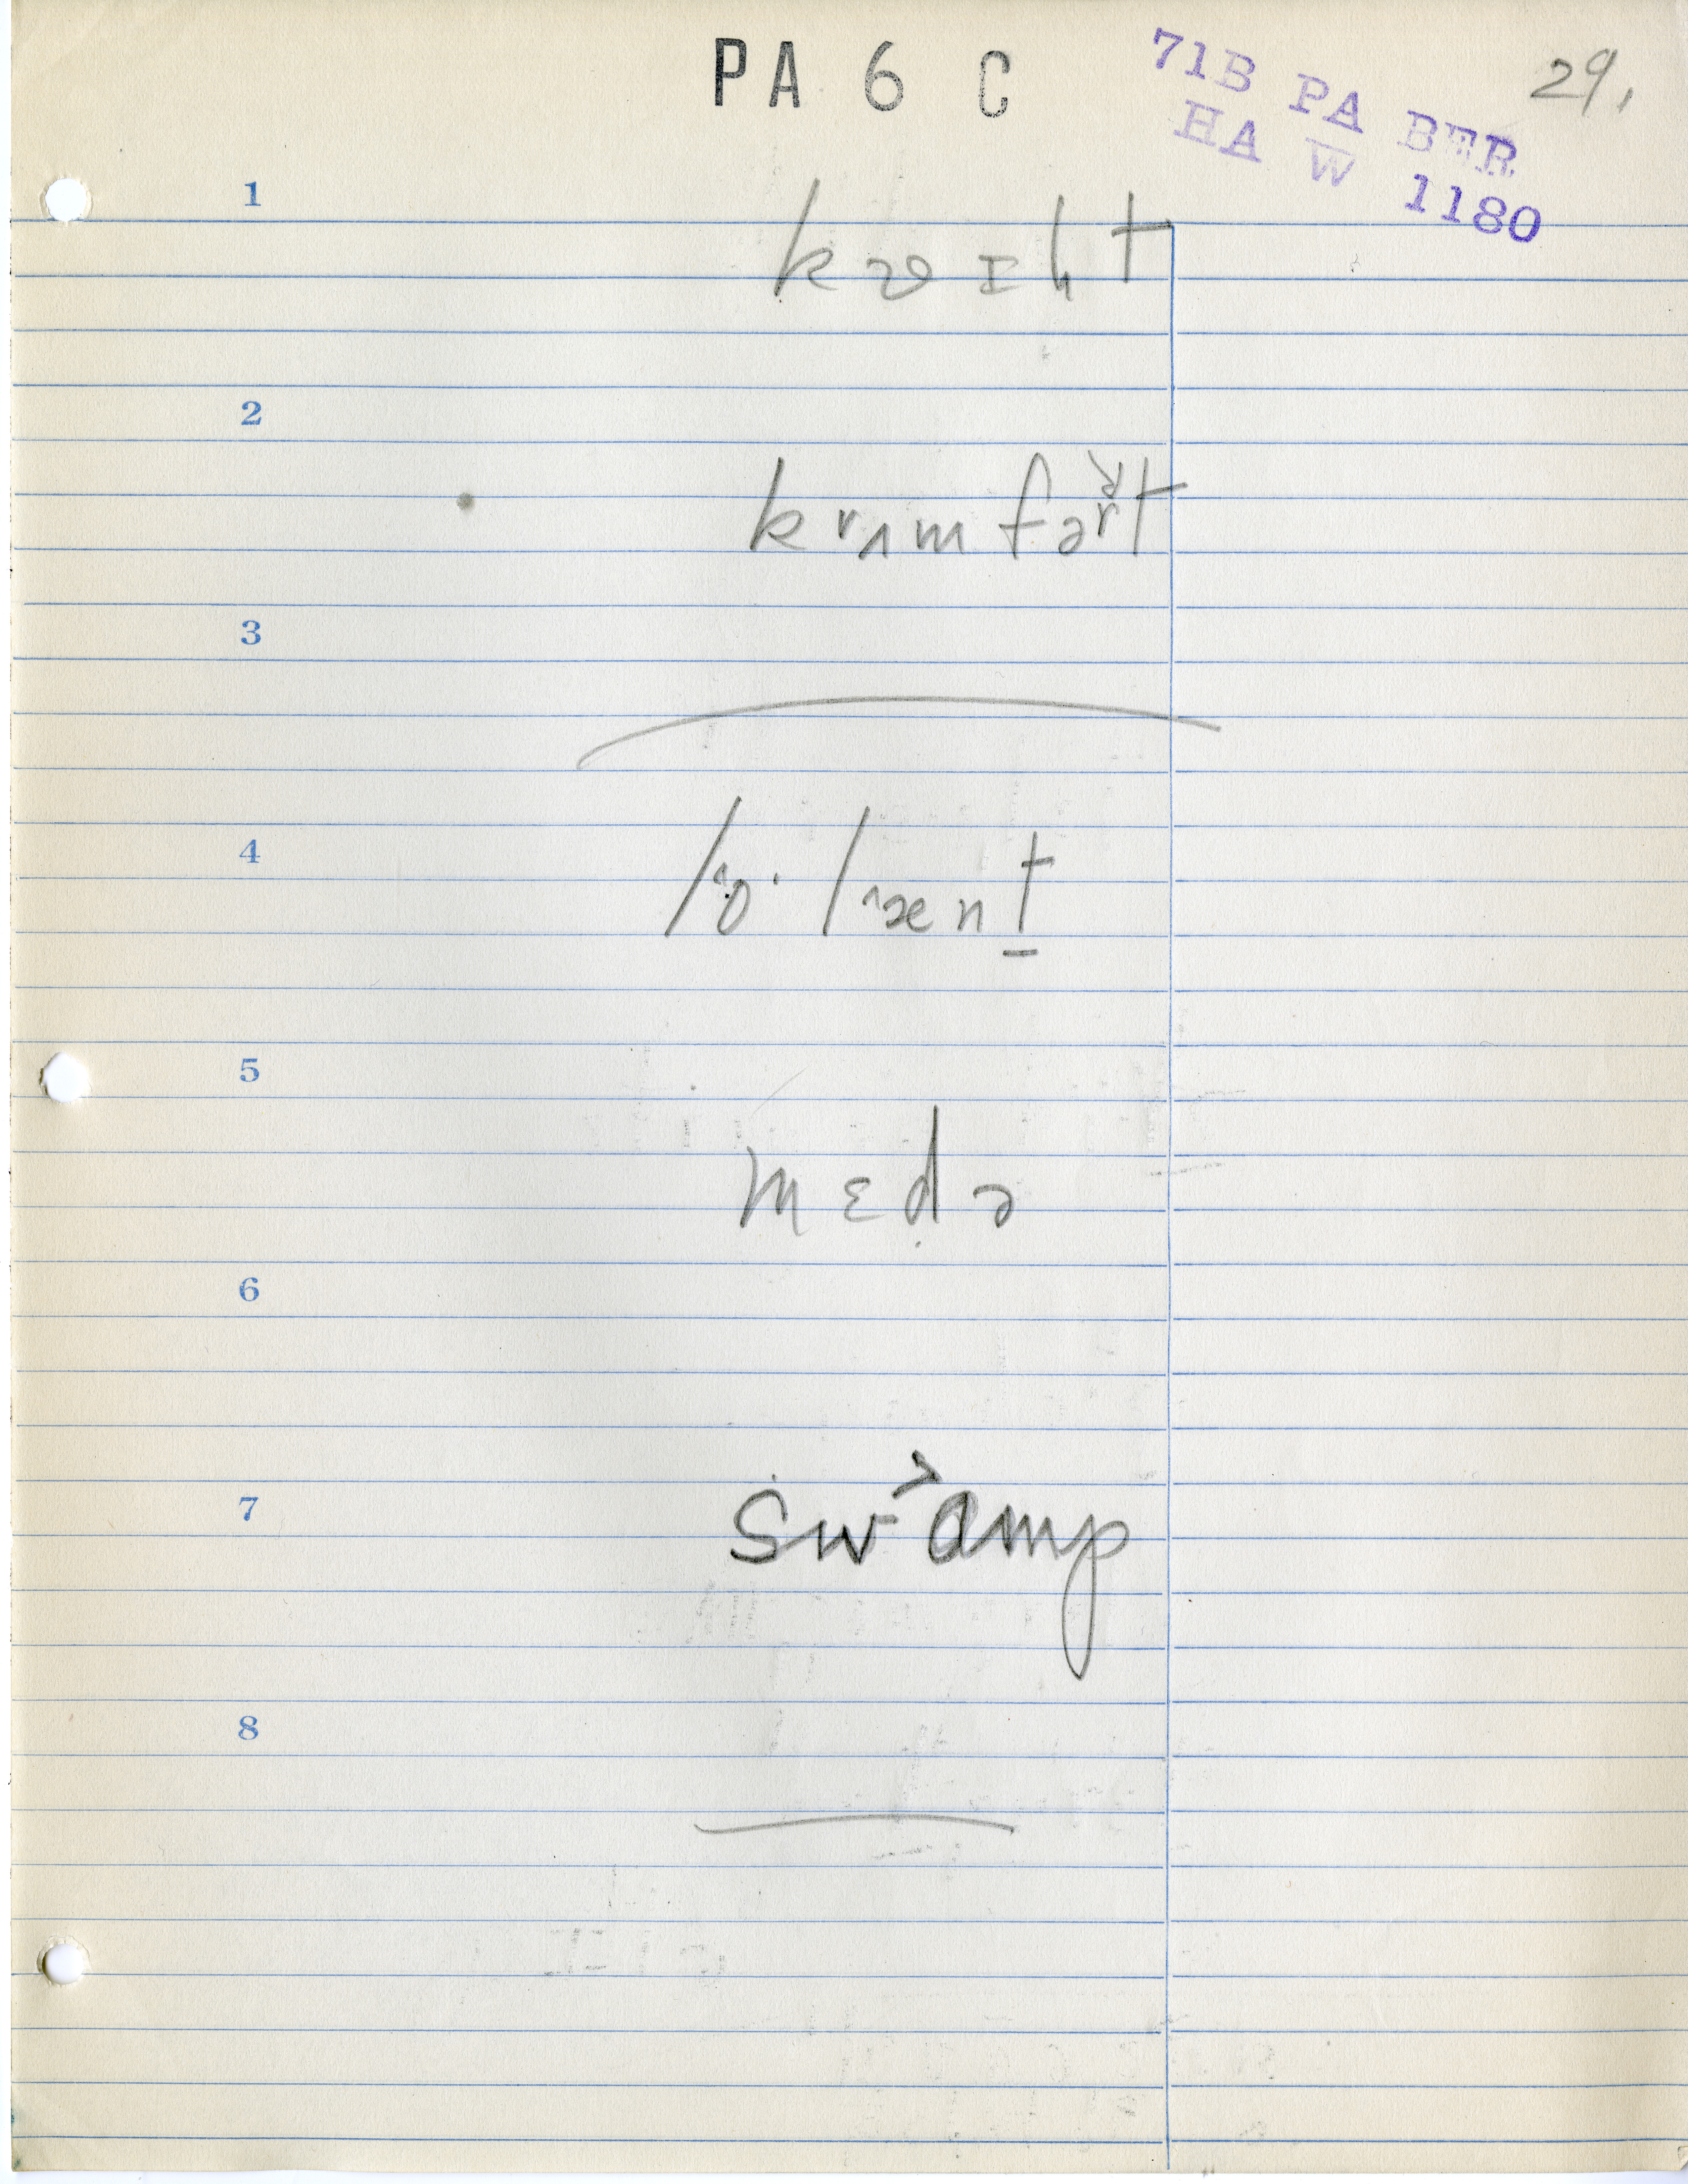 PA 6 C
71B PA BER
HA W 1180
29.
1
2
krʌmfərt
3
4
5
mɛdə
6
7
swamp
8